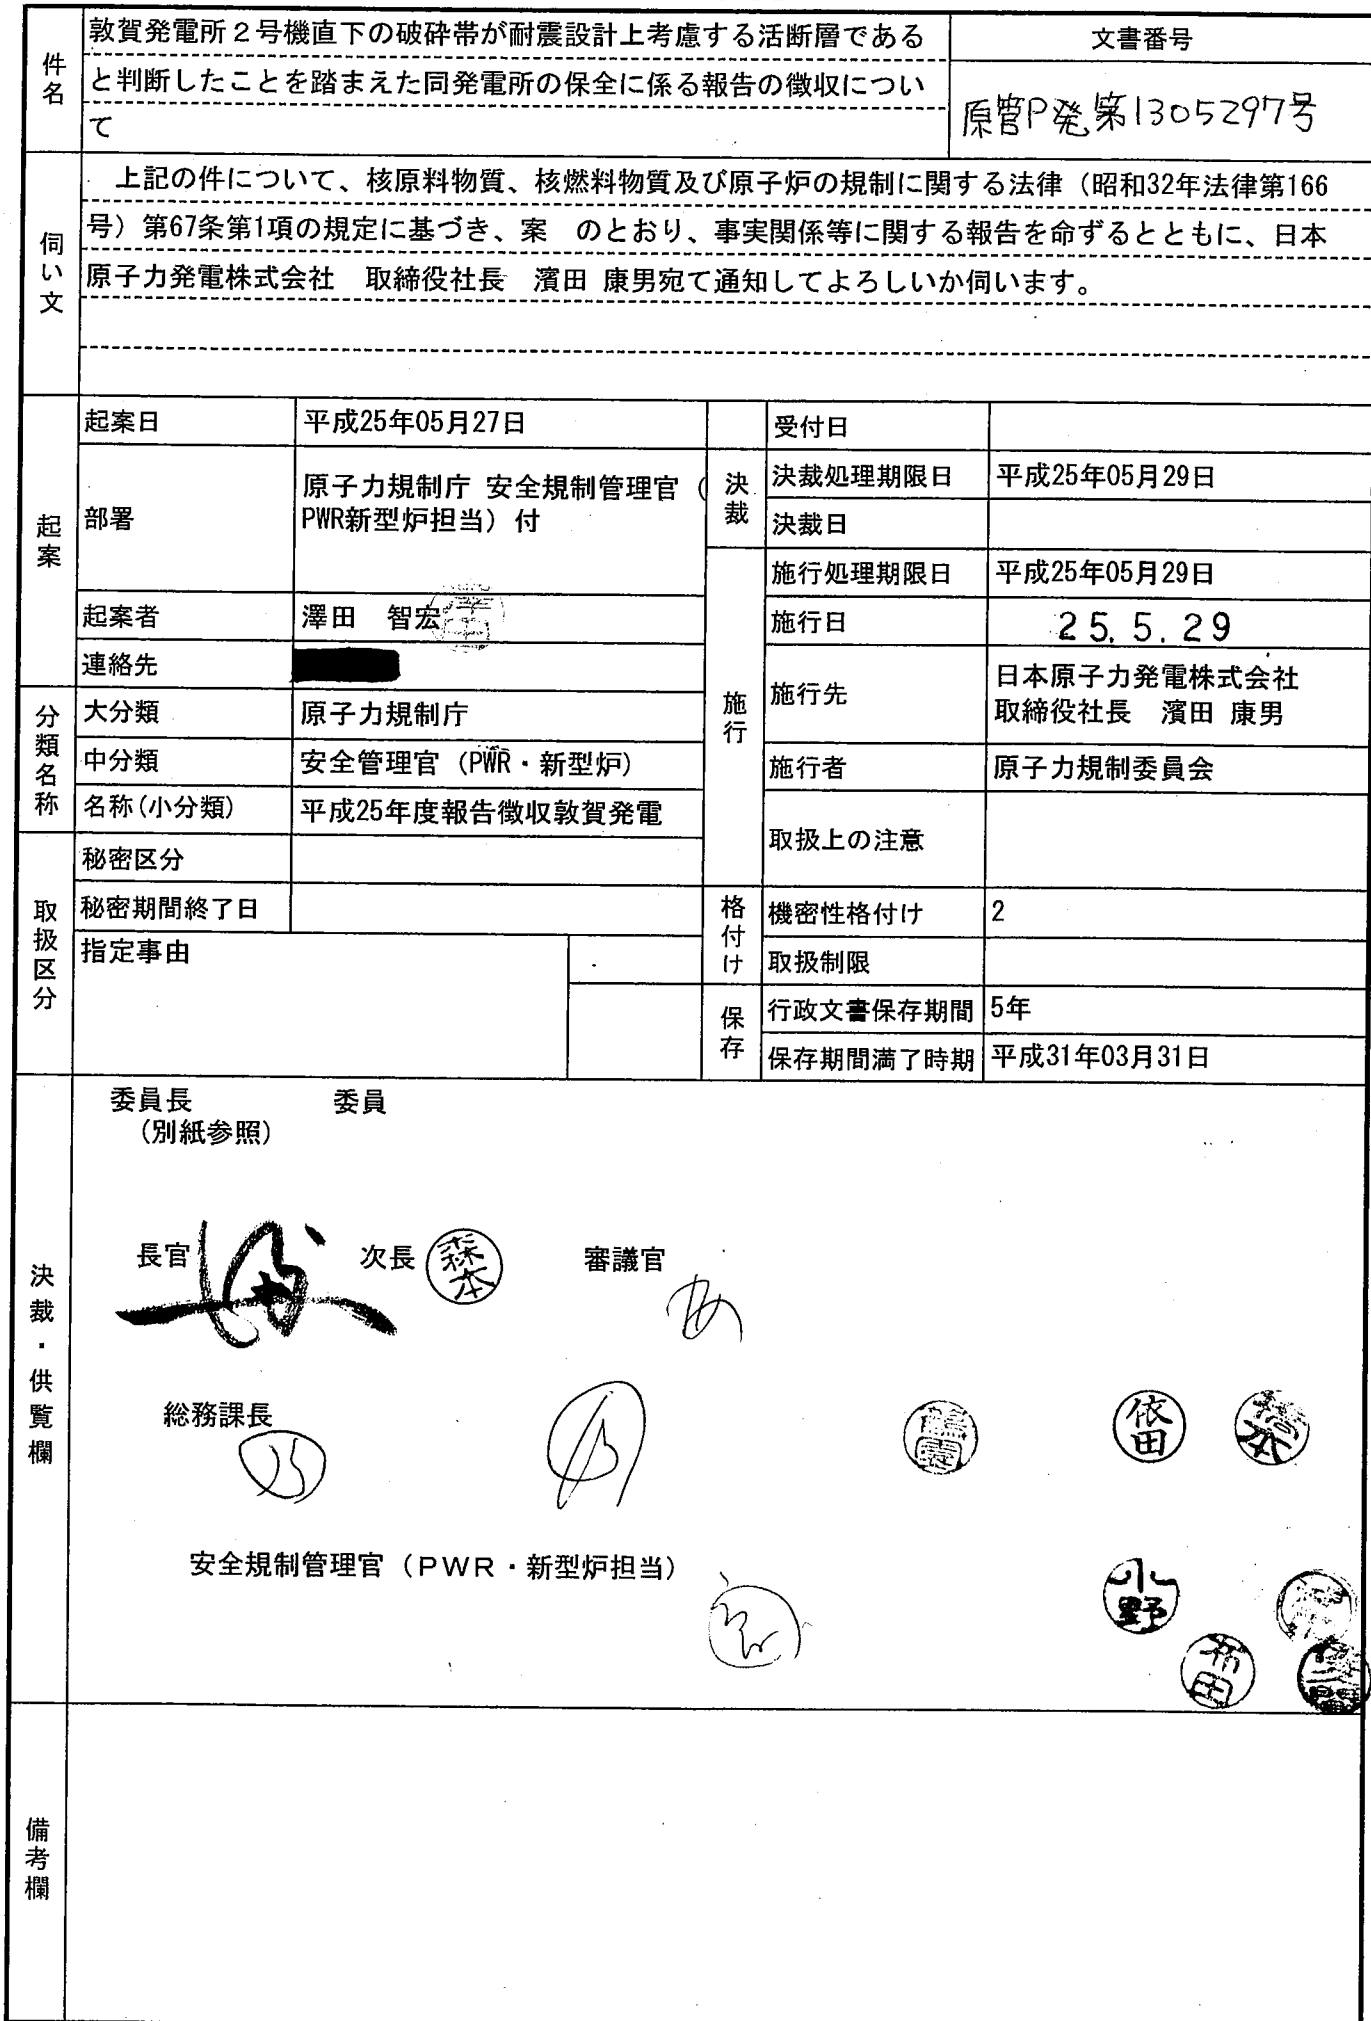 件名
敦賀発電所２号機直下の破砕帯が耐震設計上考慮する活断層である
と判断したことを踏まえた同発電所の保全に係る報告の徴収につい
て
文書番号
原管P発第1305297号
伺い文
上記の件について、核原料物質、核燃料物質及び原子炉の規制に関する法律（昭和32年法律第166
号）第67条第1項の規定に基づき、案　のとおり、事実関係等に関する報告を命ずるとともに、日本
原子力発電株式会社　取締役社長　濱田 康男宛て通知してよろしいか伺います。
起案
起案日
平成25年05月27日
部署
原子力規制庁 安全規制管理官（
PWR新型炉担当）付
起案者
澤田　智宏
連絡先
分類名称
大分類
原子力規制庁
中分類
安全管理官（PWR・新型炉）
名称(小分類)
平成25年度報告徴収敦賀発電
取扱区分
秘密区分
秘密期間終了日
指定事由
決裁
受付日
決裁処理期限日
平成25年05月29日
決裁日
施行
施行処理期限日
平成25年05月29日
施行日
25.5.29
施行先
日本原子力発電株式会社
取締役社長　濱田 康男
施行者
原子力規制委員会
取扱上の注意
格付け
機密性格付け
2
取扱制限
保存
行政文書保存期間
5年
保存期間満了時期
平成31年03月31日
決裁・供覧欄
委員長
委員
（別紙参照）
長官
次長
森本
審議官
総務課長
依田
安全規制管理官（ＰＷＲ・新型炉担当）
小野
布田
備考欄